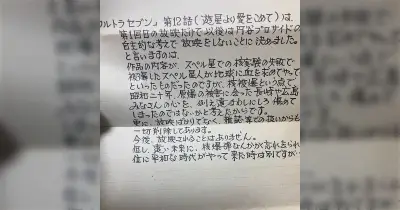 ウルトラセブン」第12話(遊星より愛をこめて)は、
第1回目の放映だけで以後は円谷プロサイドの
自主的な考えで 放映をしないことに決めました。
と言いますのは、
作品の内容が、スペル星での核実験の失敗で
被爆したスペル星人が地球に血を求めてやって
といったものだったのですが、核被爆という点で
昭和二十年、原爆の被害に会った長崎や広島
みなさんの心を、例え遠まわしにしろ傷めて
しまったのではないかと考えたからです。
更に、放映ばかりでなく、雑誌等での扱いからも
一切削除してあります。
今後、放映されることはありません。
但し、遠い未来に、核爆弾なんかが忘れ去られ
信に平和な時代がやって来た時は別ですが